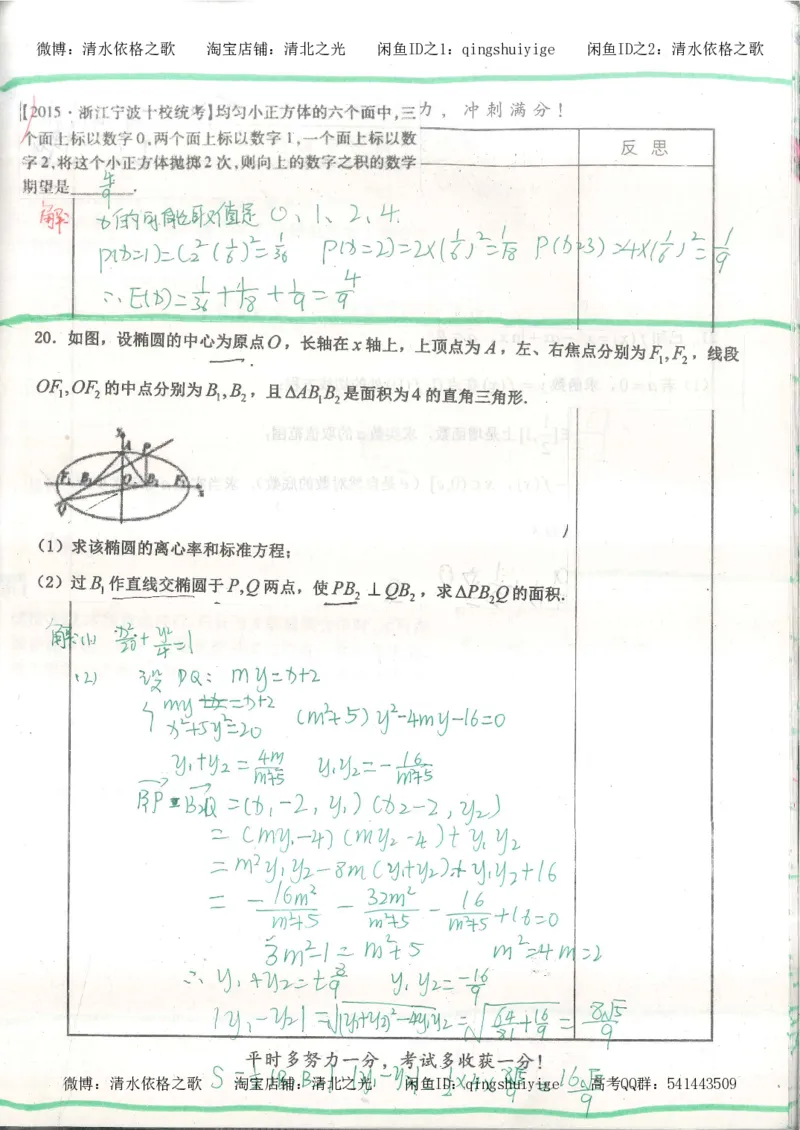 微博：清水依格之歌 淘宝店铺：清北之光 闲鱼ID之1：qingshuiyige 闲鱼ID之2：清水依格之歌
【2015·浙江宁波十校统考】均匀小正方体的六个面中,三力，冲刺满分！
个面上标以数字0,两个面上标以数字1,一个面上标以数
反思
字2,将这个小正方体抛掷2次,则向上的数字之积的数学
期望是 4/9 .
解: x的可能取值是 0、1、2、4.
P(x=1)=C₂²(1/6)²=1/36 P(x=2)=2×(1/6)²=1/18 P(x=3)=4×(1/6)²=1/9
∴E(x)=1/36+1/18+1/9=4/9
20．如图，设椭圆的中心为原点O，长轴在x轴上，上顶点为A，左、右焦点分别为F₁,F₂，线段
OF₁,OF₂的中点分别为B₁,B₂，且ΔAB₁B₂是面积为4的直角三角形.
A P
F₁ B₁ O B₂ F₂ x
Q
（1）求该椭圆的离心率和标准方程；
（2）过B₁作直线交椭圆于P,Q两点，使PB₂⊥QB₂，求ΔPB₂Q的面积.
解:(1) x²/20+y²/4=1
(2) 设PQ：my=x+2
{my=x+2
x²+5y²=20 (m²+5)y²-4my-16=0
y₁+y₂=4m/m²+5 y₁y₂=-16/m²+5
B₂P·B₂Q=(x₁-2,y₁)(x₂-2,y₂)
=(my₁-4)(my₂-4)+y₁y₂
=m²y₁y₂-8m(y₁+y₂)+y₁y₂+16
=-16m²/m²+5-32m²/m²+5-16/m²+5+16=0
3m²-1=m²+5 m²=4 m=2
∴y₁+y₂=±8/9 y₁y₂=-16/9
|y₁-y₂|=√(y₁+y₂)²-4y₁y₂=√64/81+16/9=8√5/9
平时多努力一分，考试多收获一分！
微博：清水依格之歌 淘宝店铺：清北之光 闲鱼ID：qingshuiyige 高考QQ群：541443509